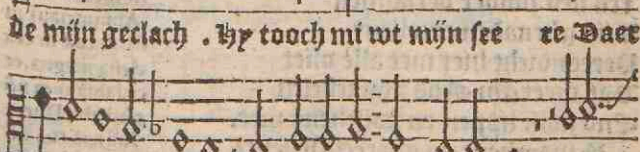 de mijn geclach . Hy tooch mi wt mijn see re Daer